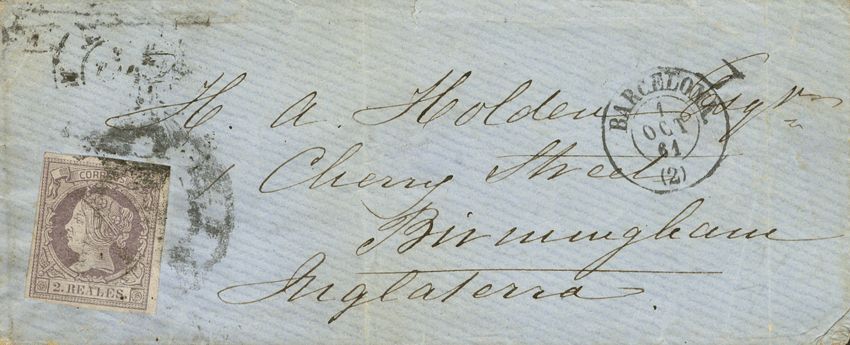 H. A. Holden Esqre
Cherry Street
Birmingham
Inglaterra
BARCELONA
1
OCT
61
(2)
CORREOS
2. REALES.